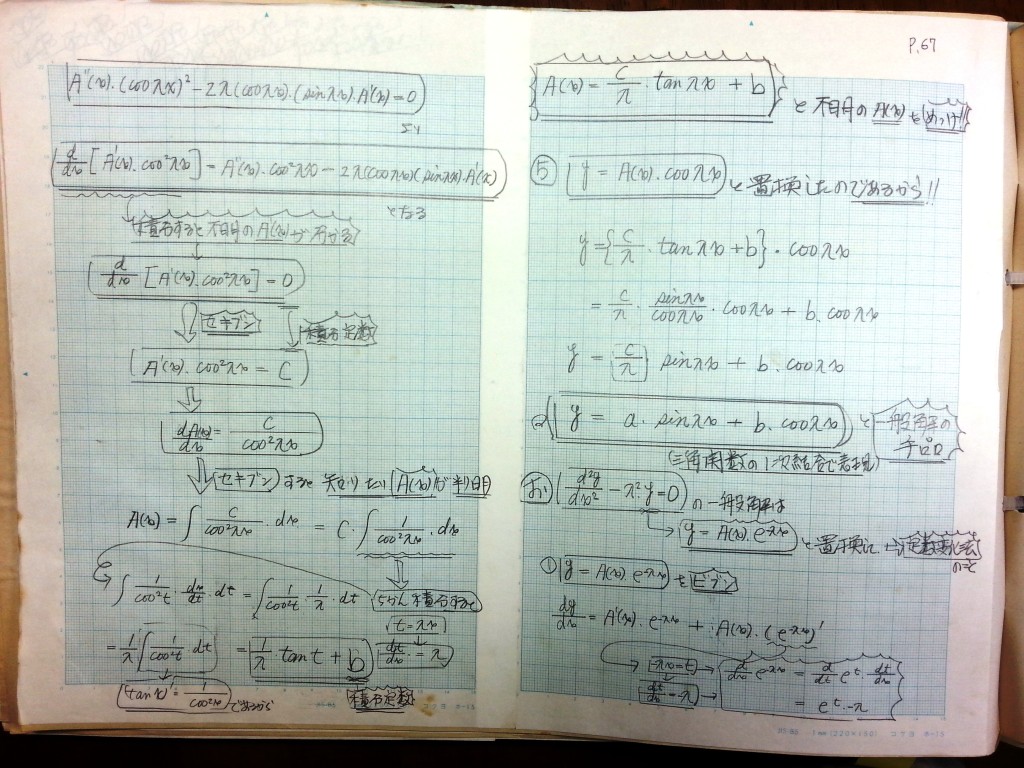 A''(x)・(cosπx)² − 2π(cosπx)・(sinπx)・A'(x) = 0
より
d/dx [A'(x)・cos²πx] = A''(x)・cos²πx − 2π(cosπx)(sinπx)・A'(x)
となる
積分すると不明のA(x)が分かる
d/dx [A'(x)・cos²πx] = 0
セキブン 積分定数
A'(x)・cos²πx = C
dA(x)/dx = C/cos²πx
セキブンすると知りたいA(x)が判明
A(x) = ∫ C/cos²πx・dx = C・∫ 1/cos²πx・dx
∫ 1/cos²t・dx/dt・dt = ∫ 1/cos²t・1/π・dt
ちかん積分すると
t = πx
= 1/π ∫ 1/cos²t dt = 1/π・tant + b
dt/dx = π
(tanx)' = 1/cos²x であるから
積分定数
P.67
A(x) = C/π・tanπx + b
と不明のA(x)をめっけ!!
⑤ y = A(x)・cosπx と置換したのであるから!!
y = {C/π・tanπx + b}・cosπx
= C/π・sinπx/cosπx・cosπx + b・cosπx
y = (C/π) sinπx + b・cosπx
y = a・sinπx + b・cosπx と一般解の
(三角関数の1次結合で表現)
d²y/dx² − π²・y = 0 の一般解は
y = A(x)・e^-πx と置換し → 定数変化法
のこと
① y = A(x)・e^-πx をビブン
dy/dx = A'(x)・e^-πx + A(x)・(e^-πx)'
-πx = t → d/dx e^-πx = d/dt e^t・dt/dx
dt/dx = -π → = e^t・-π
1mm(220×190) コクヨ ホ-15